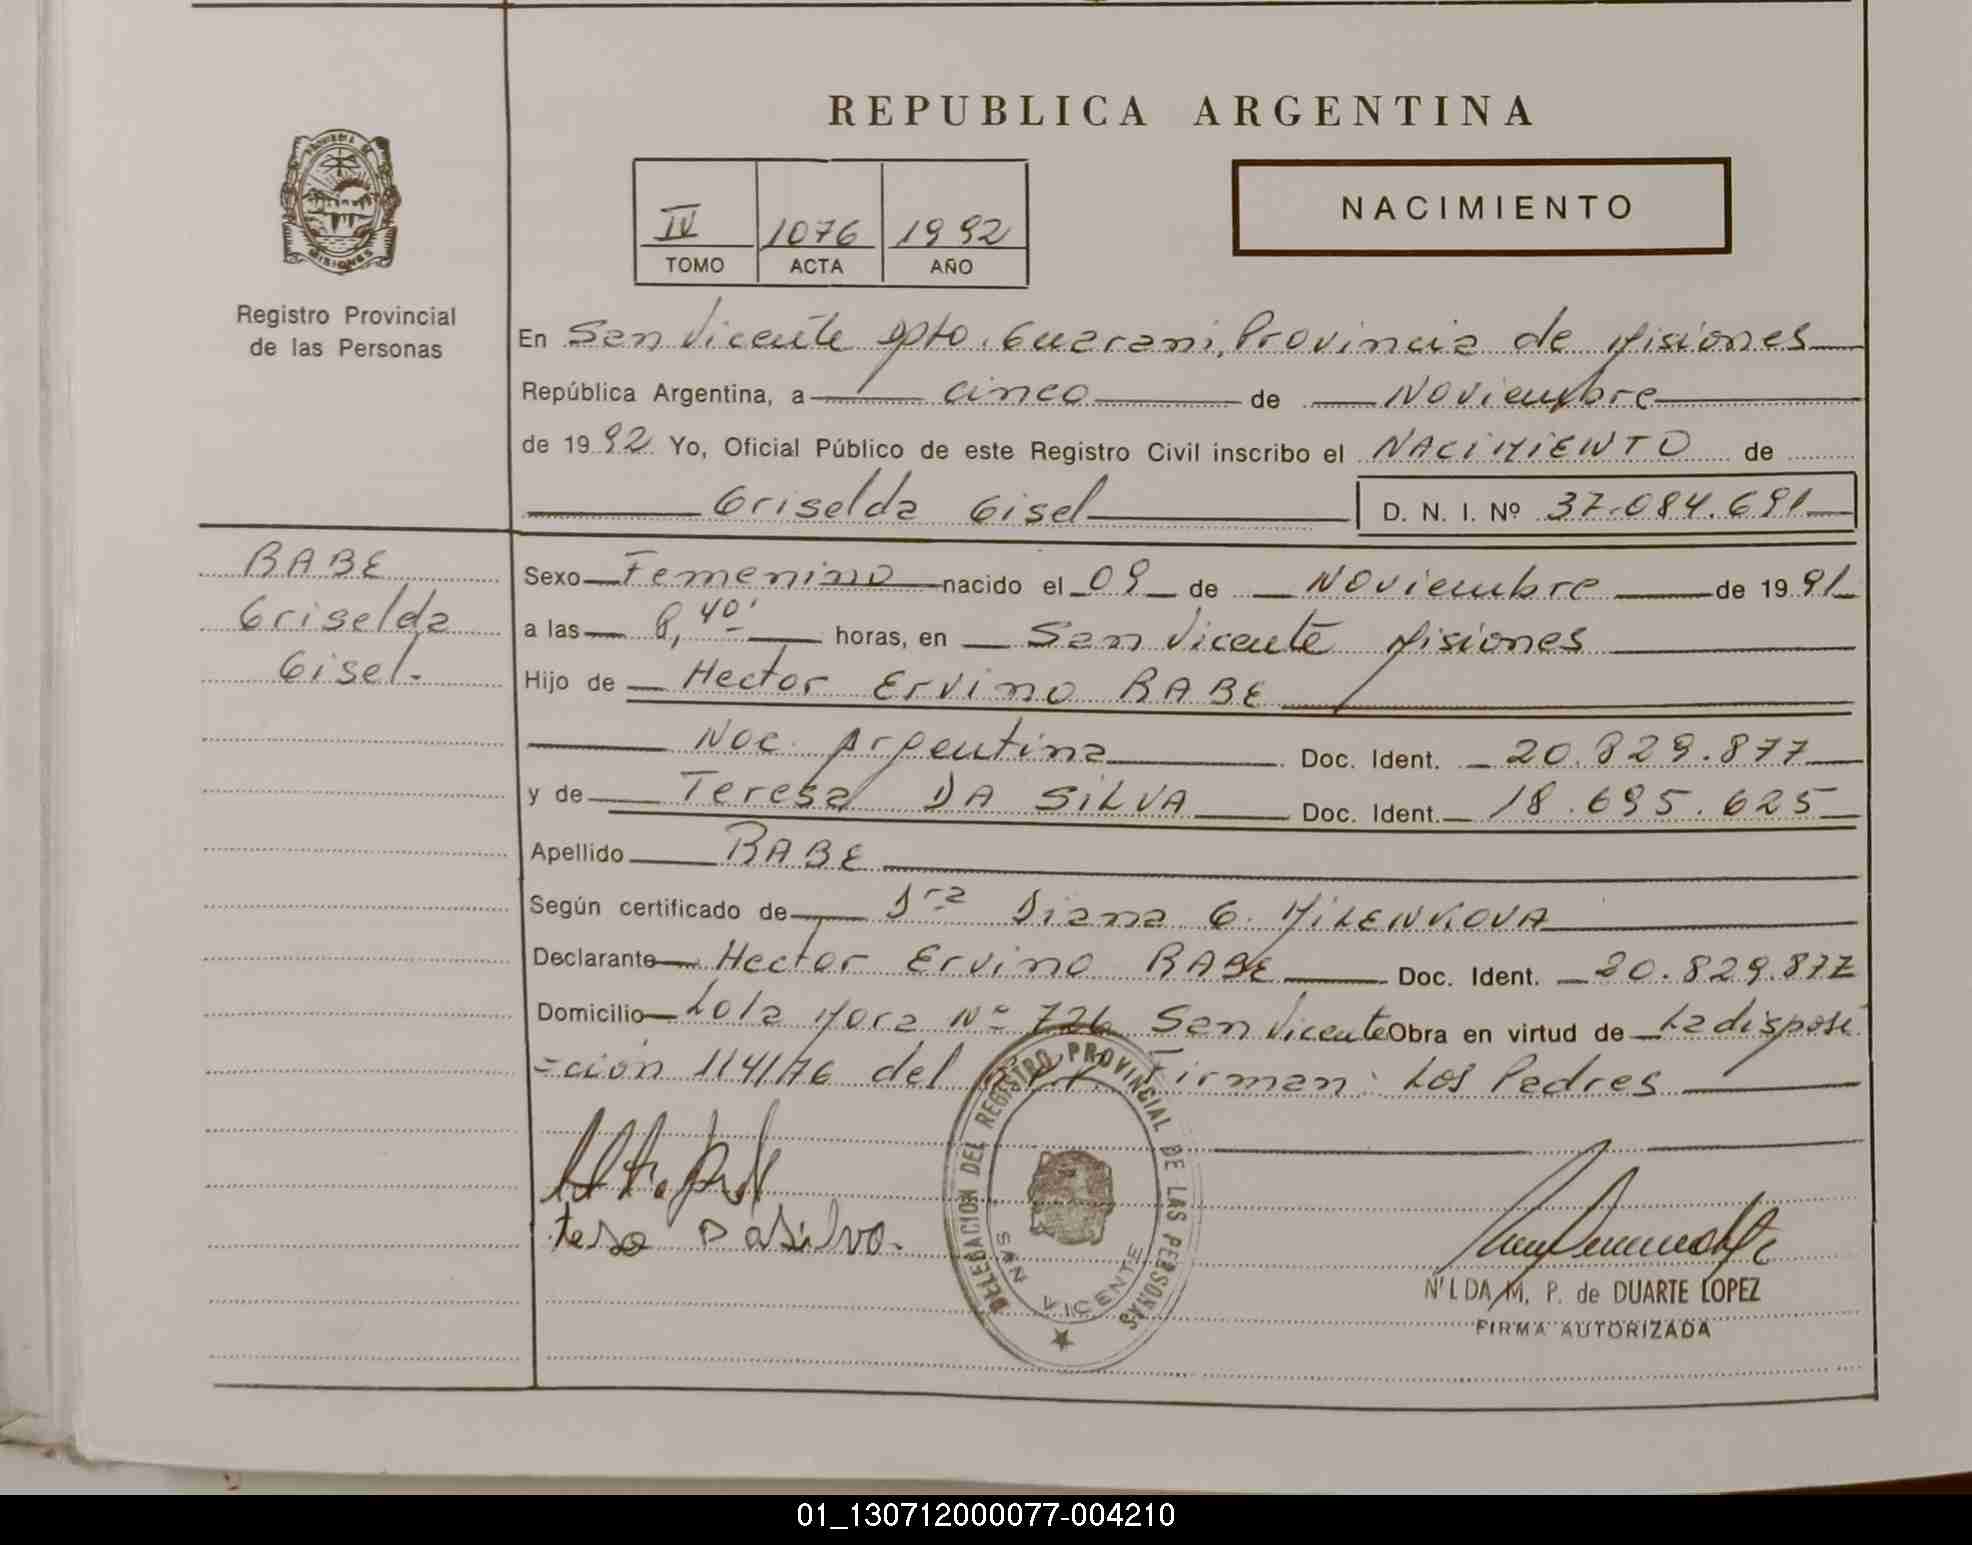 REPUBLICA ARGENTINA
NACIMIENTO
IV 1076 1992
TOMO ACTA AÑO
Registro Provincial
de las Personas
En San Vicente Dpto. Guarani, Provincia de Misiones
República Argentina, a cinco de Noviembre
de 1992 Yo, Oficial Público de este Registro Civil inscribo el NACIMIENTO de
Griselda Gisel D. N. I. Nº 37.084.691
RABE
Griselda
Gisel.
Sexo Femenino nacido el 09 de Noviembre de 1991
a las 8,40' horas, en San Vicente Misiones
Hijo de Hector Ervino RABE
Nac. Argentina Doc. Ident. 20.829.877
y de Teresa DA SILVA Doc. Ident. 18.695.625
Apellido RABE
Según certificado de Dra Diana G. MILENKOVA
Declarante Hector Ervino RABE Doc. Ident. 20.829.877
Domicilio Lola Mora Nº 726 San Vicente Obra en virtud de La disposi
=ción 114/76 del Firman: Los Padres
tersa Dasilva.
DELEGACION DEL REGISTRO PROVINCIAL DE LAS PERSONAS
SAN VICENTE
NILDA M. P. de DUARTE LOPEZ
FIRMA AUTORIZADA
01_130712000077-004210